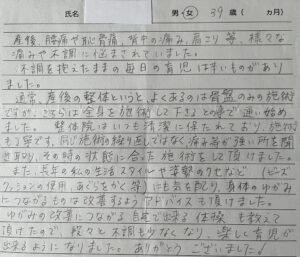 氏名 男・女 39 歳( ヵ月)
産後、腰痛や恥骨痛、背中の痛み、肩こり等、様々な
痛みや不調に悩まされていました。
不調を抱えたままの毎日の育児は辛いものがあり
ました。
通常、産後の整体というと、よくあるのは骨盤のみの施術
ですが、こちらは全身を施術して下さるとの事で通い始め
ました。整体院はいつも清潔に保たれており、施術
も丁寧です。同じ施術の繰り返しではなく痛み等が強い所を聞
き取り、その時の状態に合った施術をして頂けました。
また、長年の私の生活スタイルや姿勢のクセなど(ビーズ
クッションの使用、あぐらをかく等)にも気を配り、身体のゆがみ
につながるものは改善するようアドバイスも頂けました。
ゆがみの改善につながる自宅で出来る体操も教えて
頂けたので、段々と不調も少なくなり、楽しく育児が
出来るようになりました。ありがとうございました!